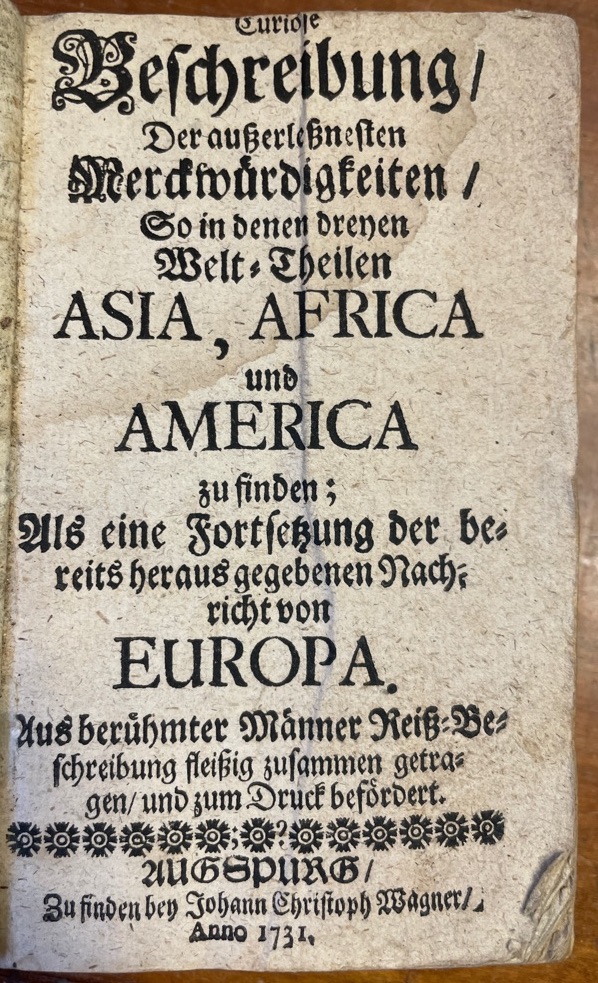 Curioſe
Beſchreibung/
Der außerleßneſten
Merckwürdigkeiten /
So in denen dreyen
Welt-Theilen
ASIA, AFRICA
und
AMERICA
zu finden;
Als eine Fortſetzung der be-
reits heraus gegebenen Nach-
richt von
EUROPA.
Aus berühmter Männer Reiß-Be-
ſchreibung fleißig zuſammen getra-
gen/ und zum Druck befördert.
AUGSPURG/
Zu finden bey Johann Chriſtoph Wagner/
Anno 1731.